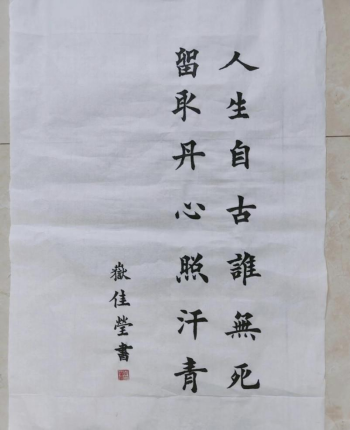 人生自古誰無死
留取丹心照汗青
嶽佳瑩書